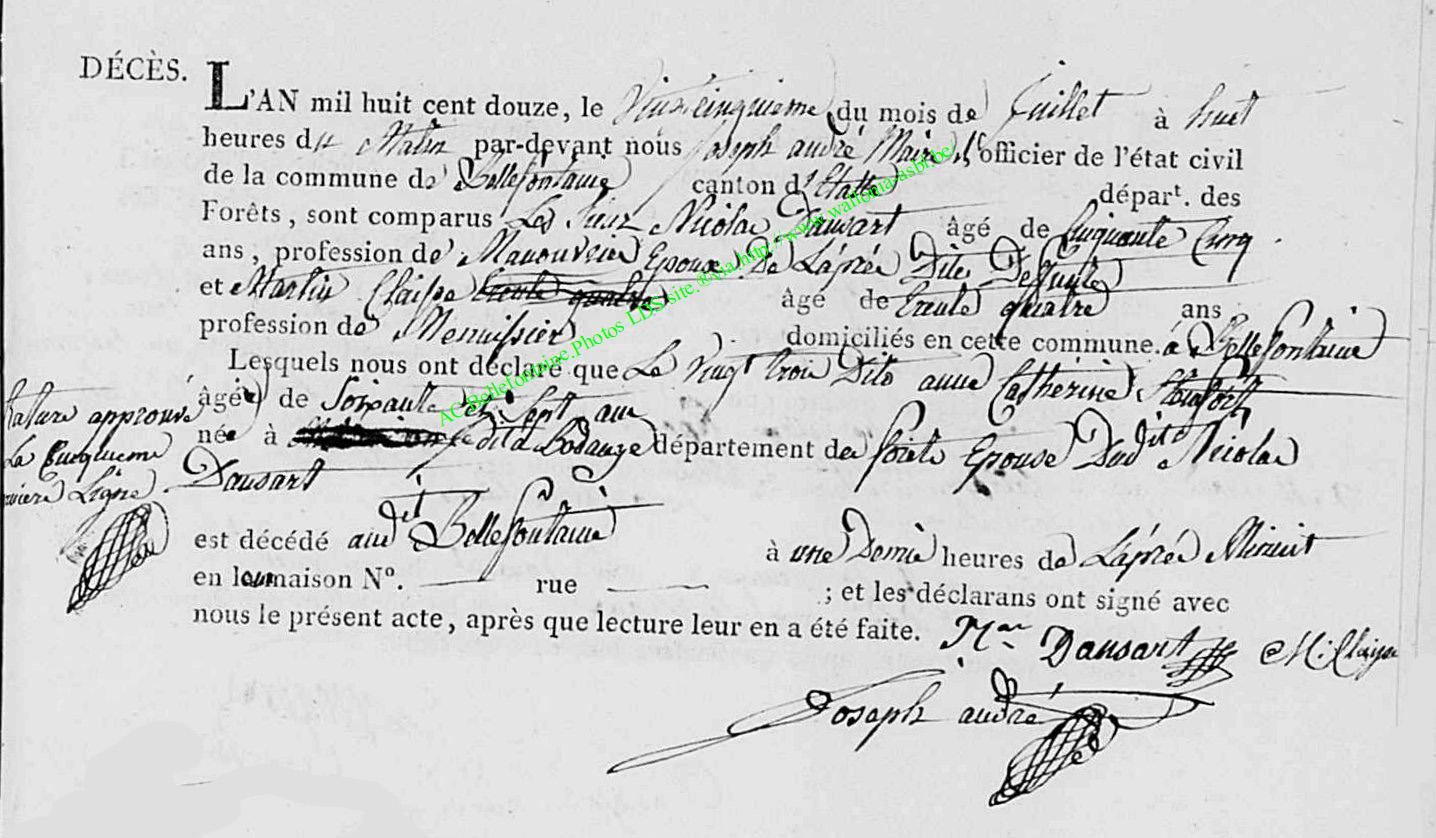 DÉCÈS.
L'AN mil huit cent douze, le Vintcinquieme du mois de Juillet à huit
heures du Matin par-devant nous Joseph andré Maire, l'officier de l'état civil
de la commune de Bellefontaine canton d'Etalle départ. des
Forêts, sont comparus Les Sieur Nicolas Dausart âgé de Cinquante Cinq
ans, profession de Manouvrier Epoux De Laprée Dite Defunte
et Martin Claisse âgé de trente quatre ans
profession de Menuissier domiciliés en cette commune. à Bellefontaine
Lesquels nous ont déclaré que Le vingt trois Dito anne Catherine
âgée de Soixante et Sept ans
née à département de forêts Epouse Dudit Nicolas
Dausart
Rature approuvé
La Cinquieme
Ligne
est décédé audit Bellefontaine à une Demie heures de Laprée Minuit
en maison Nº. rue ; et les déclarans ont signé avec
nous le présent acte, après que lecture leur en a été faite. Dausart M: Claisse
Joseph andré
AC Bellefontaine Photos LDS site & via http://www.wallonia-asbl.be/